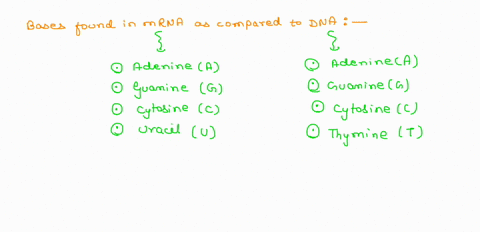 Bases found in mRNA as compared to DNA :—
⊙ Adenine (A)
⊙ Guanine (G)
⊙ Cytosine (C)
⊙ Uracil (U)
⊙ Adenine (A)
⊙ Guanine (G)
⊙ Cytosine (C)
⊙ Thymine (T)